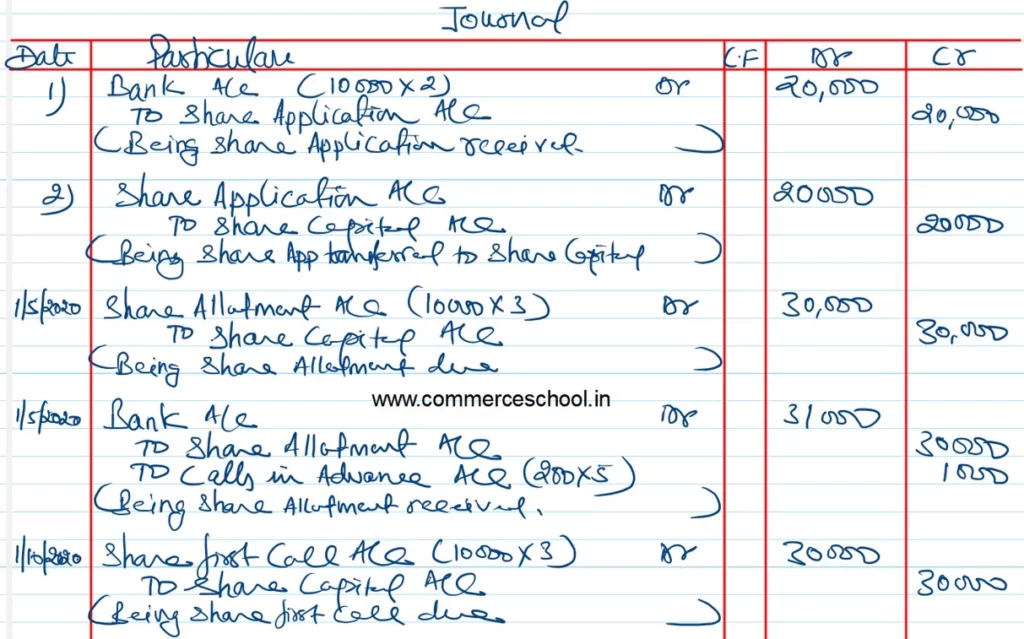 Journal
Date Particulars C.F Dr Cr
1) Bank A/c (10000×2) Dr 20,000
To Share Application A/c 20,000
(Being Share Application received.)
2) Share Application A/c Dr 20000
To Share Capital A/c 20000
(Being Share App transferred to Share Capital)
1/5/2020 Share Allotment A/c (10000×3) Dr 30,000
To Share Capital A/c 30,000
(Being Share Allotment due)
www.commerceschool.in
1/5/2020 Bank A/c Dr 31000
To Share Allotment A/c 30000
To Calls in Advance A/c (200×5) 1000
(Being Share Allotment received.)
1/10/2020 Share first Call A/c (10000×3) Dr 30000
To Share Capital A/c 30000
(Being Share first Call due)